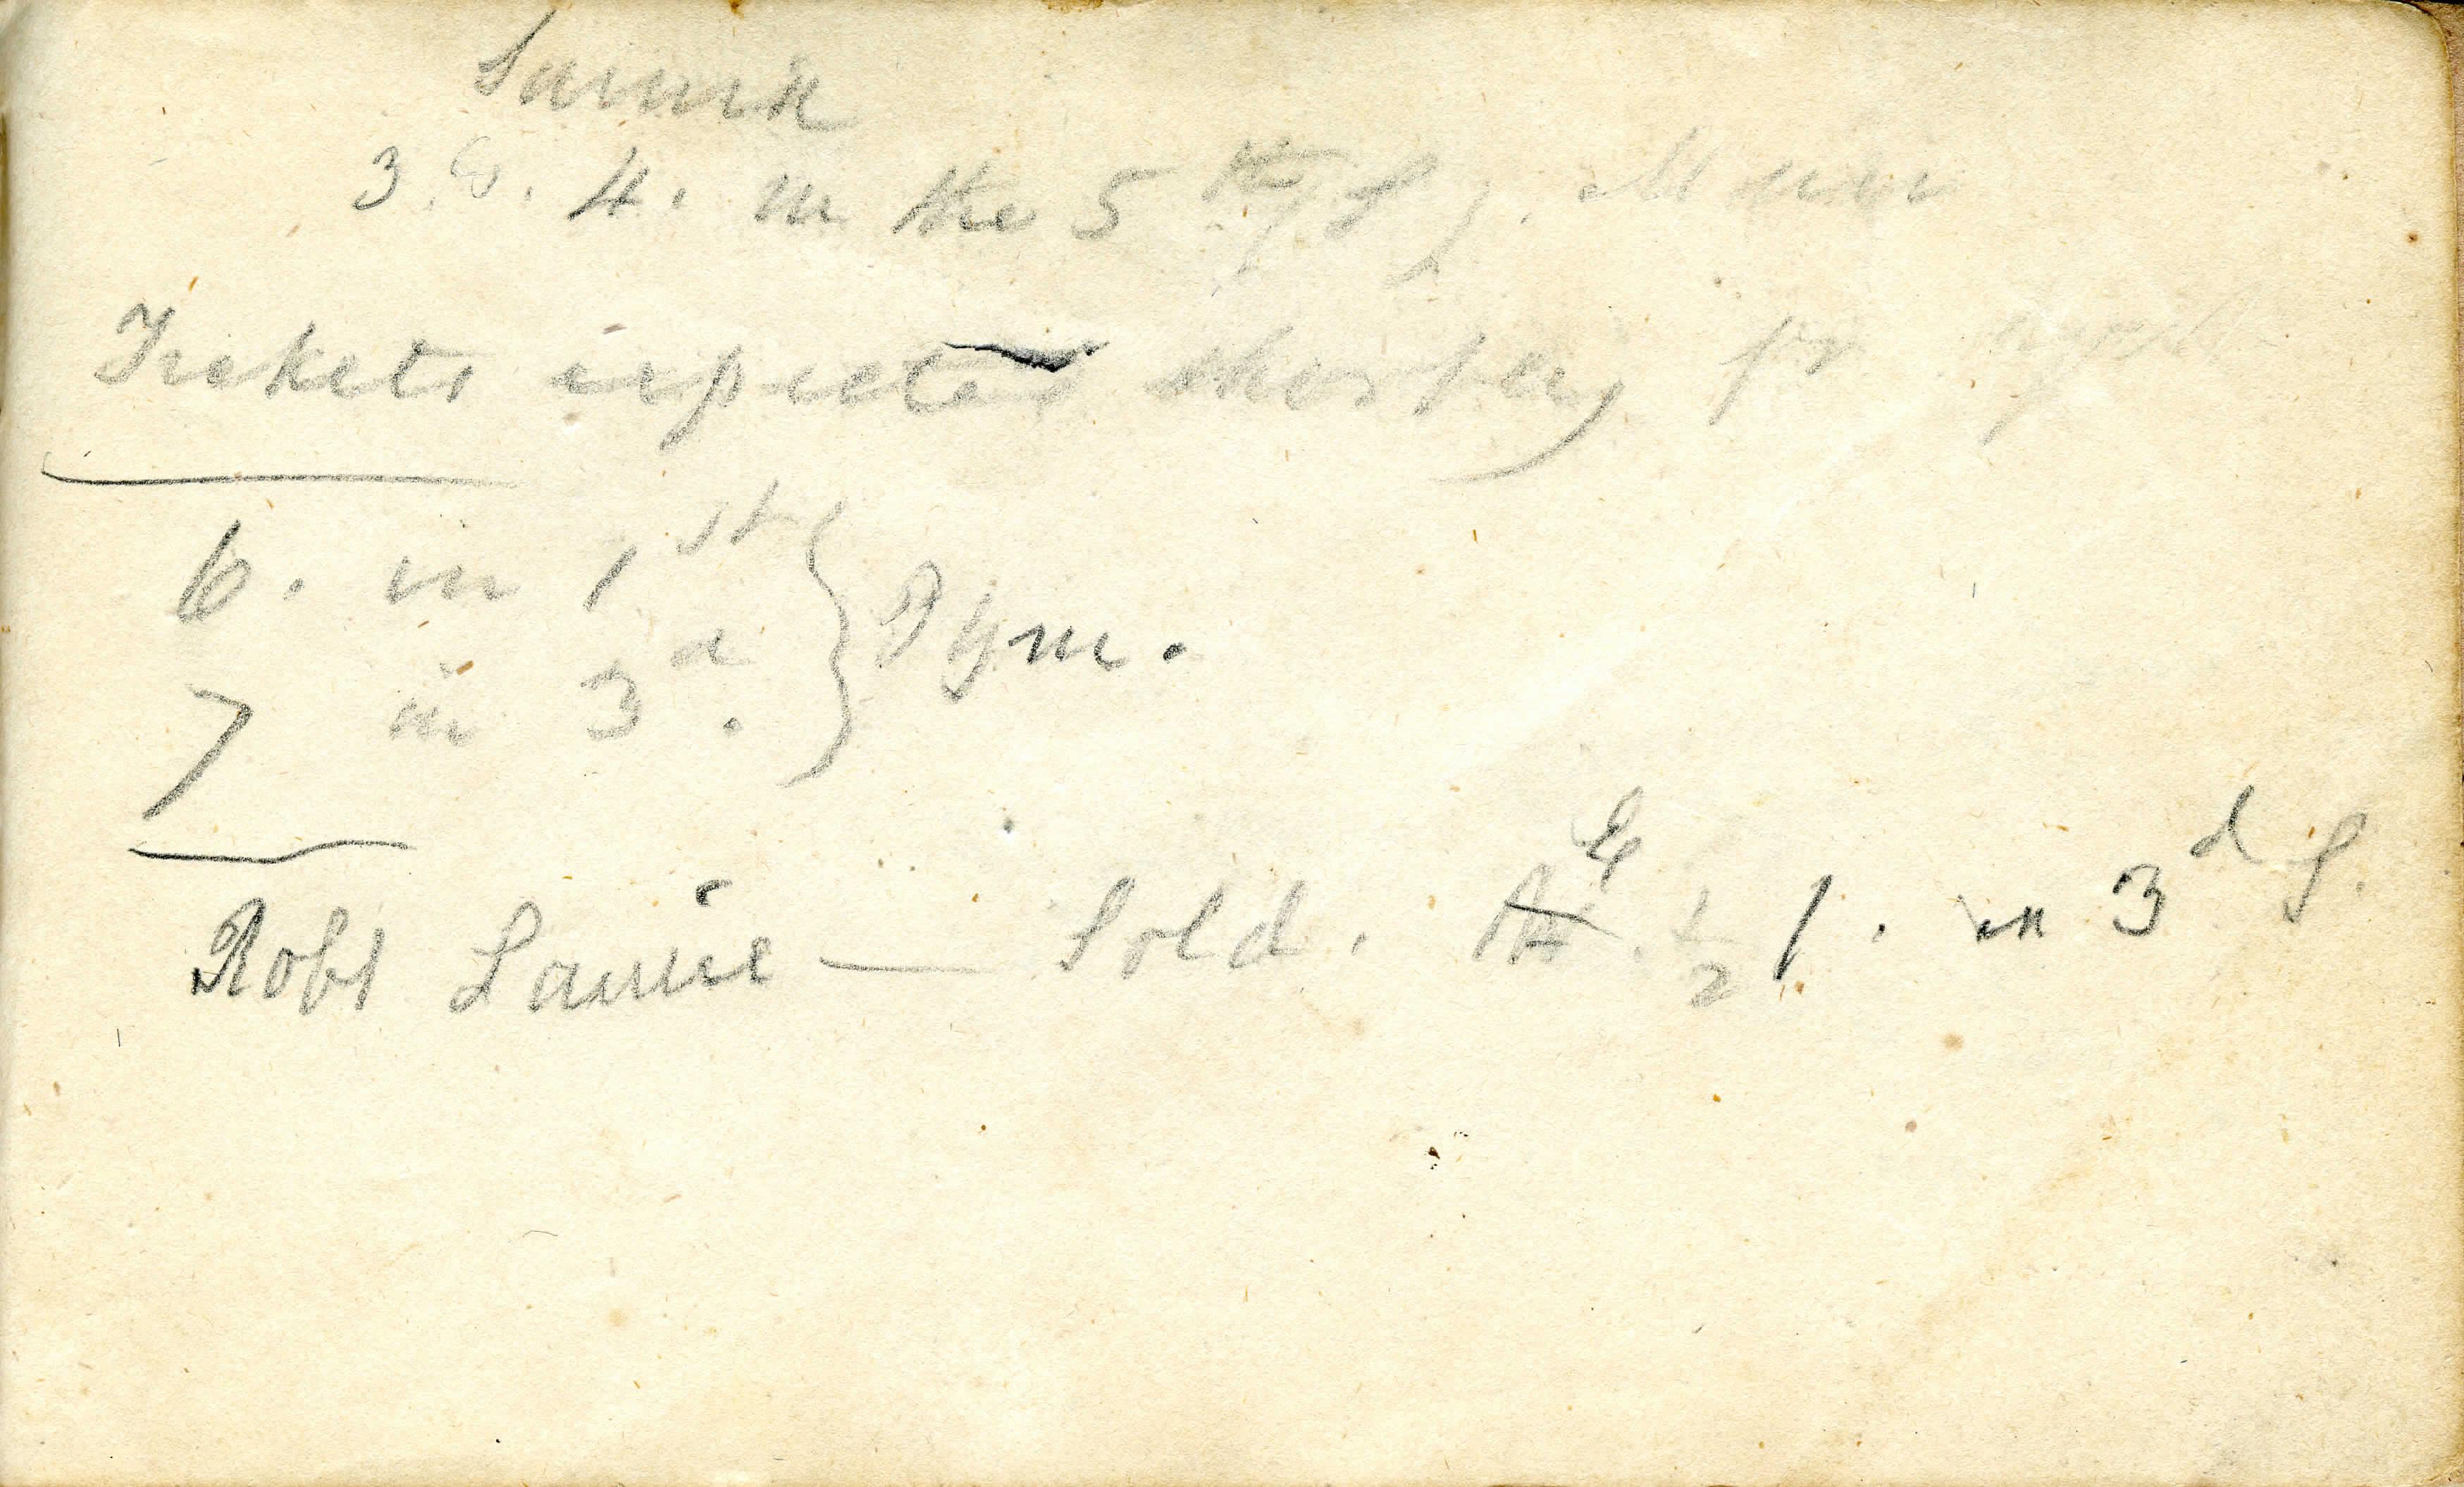 Sarnia
3 & 4. in the 5th
Tickets expected shortly for
6. in 1st
7 in 3d.
} Pym.
Robt Laurie — Sold. E ½ 1. in 3d